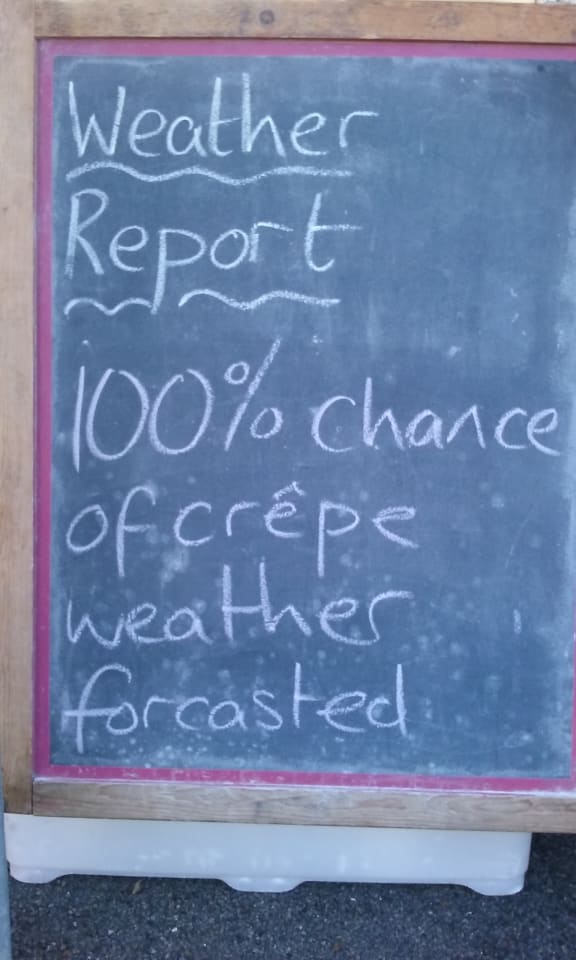 Weather
Report
100% chance
of crêpe
weather
forcasted